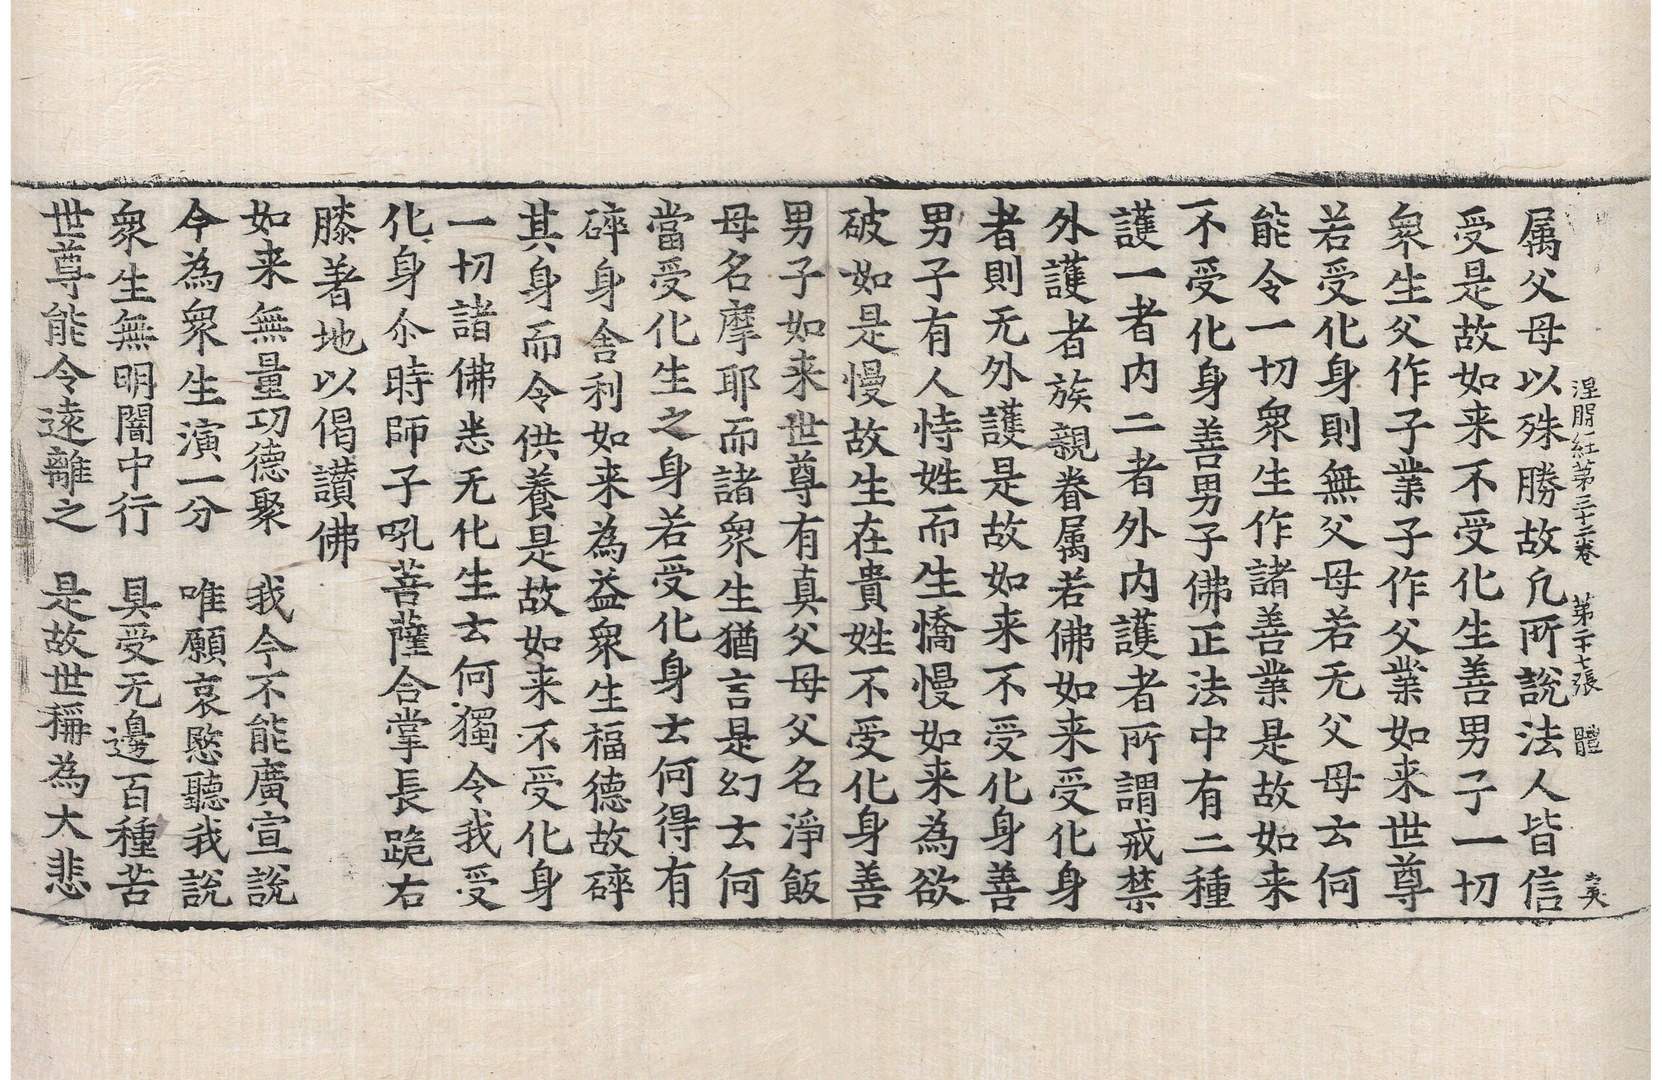 涅槃経苐三十二卷 苐二十七張 體
属父母以殊勝故凢所說法人皆信
受是故如来不受化生善男子一切
衆生父作子業子作父業如来世尊
若受化身則無父母若无父母云何
能令一切衆生作諸善業是故如来
不受化身善男子佛正法中有二種
護一者内二者外内護者所謂戒禁
外護者族親眷属若佛如来受化身
者則无外護是故如来不受化身善
男子有人恃姓而生憍慢如来為欲
破如是慢故生在貴姓不受化身善
男子如来世尊有真父母父名淨飯
母名摩耶而諸衆生猶言是幻云何
當受化生之身若受化身云何得有
碎身舍利如来為益衆生福德故碎
其身而令供養是故如来不受化身
一切諸佛悉无化生云何獨令我受
化身尒時師子吼菩薩合掌長跪右
膝著地以偈讃佛
如来無量功德聚 我今不能廣宣說
今為衆生演一分 唯願哀愍聽我說
衆生無明闇中行 具受无邊百種苦
世尊能令遠離之 是故世稱為大悲